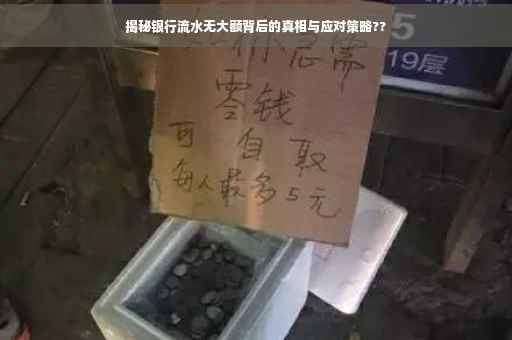 揭秘银行流水无大额背后的真相与应对策略??
你急需
零钱
可自取
每人最多5元
5
19层